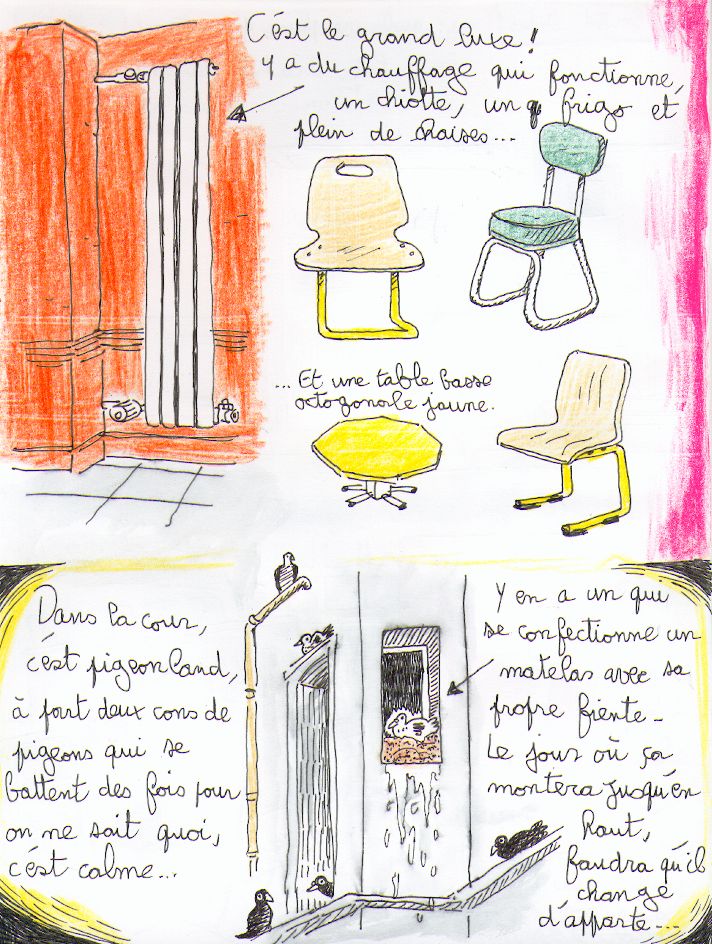 C'est le grand luxe !
Y a du chauffage qui fonctionne,
un chiotte, un frigo et
plein de chaises...
... Et une table basse
octogonale jaune.
Dans la cour,
c'est pigeonland,
à part deux cons de
pigeons qui se
battent des fois pour
on ne sait quoi,
c'est calme...
Y en a un qui
se confectionne un
matelas avec sa
propre fiente_
Le jour où ça
montera jusqu'en
haut,
faudra qu'il
change
d'apparte...